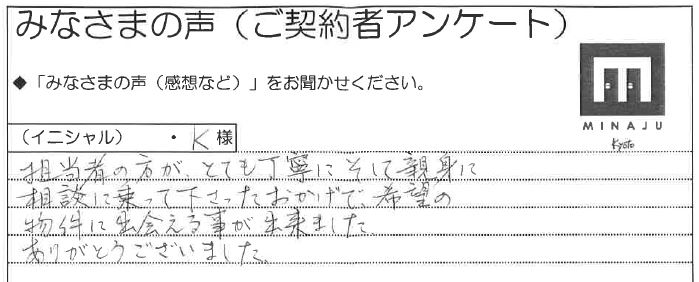 みなさまの声（ご契約者アンケート）
◆「みなさまの声（感想など）」をお聞かせください。
MINAJU
Kyoto
（イニシャル）　・K様
担当者の方が、とても丁寧にそして親身に
相談に乗って下さったおかげで、希望の
物件に出会える事が出来ました
ありがとうございました。